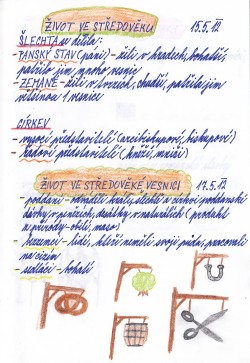 ŽIVOT VE STŘEDOVĚKU 15.5.
ŠLECHTA se dělila:
- PANSKÝ STAV (páni) - žili v hradech, bohatší,
patřilo jim mnoho vesnic
- ZEMANÉ - žili v tvrzích, chudší, patřila jim
většinou 1 vesnice
CÍRKEV
- vysocí představitelé (arcibiskupové, biskupové)
- řadoví představitelé (kněží, mniši)
ŽIVOT VE STŘEDOVĚKÉ VESNICI 17.5.
- poddaní - odváděli králi, šlechtě a církvi poddanské
dávky v penězích, dražby v naturáliích (produkt
z přírody - obilí, maso)
- bezzemci - lidé, kteří neměli svoji půdu, pracovali
na cizím
- sedláci - bohatí